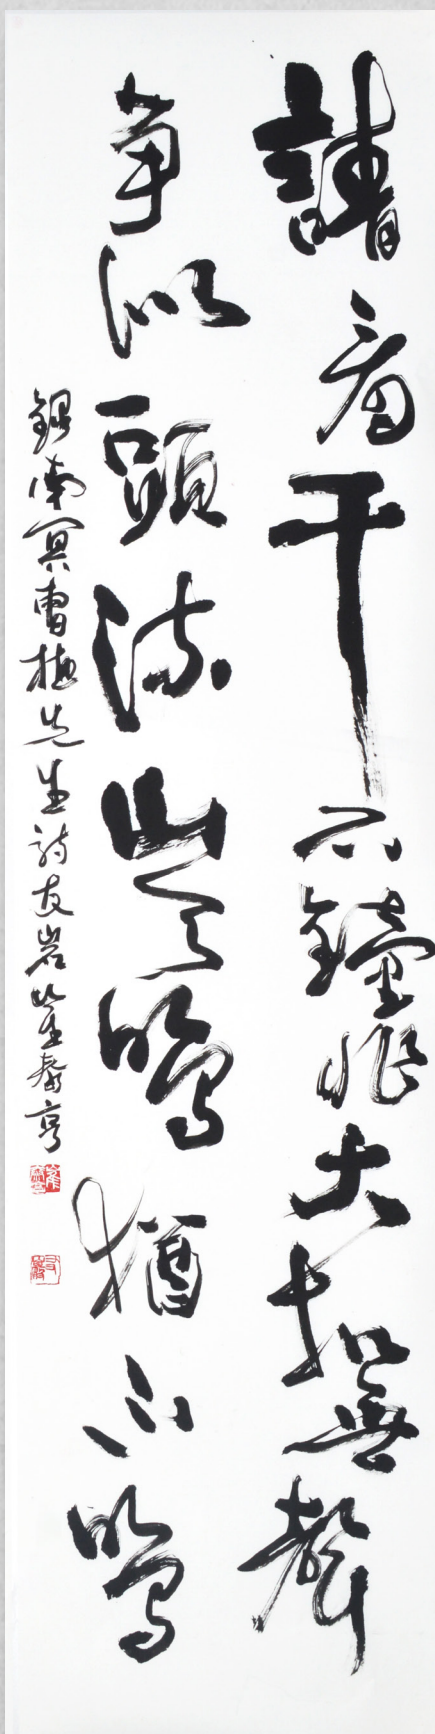 請看千石鐘非大扣無聲
爭似頭流山天鳴猶不鳴
錄南冥曺植先生詩友岩